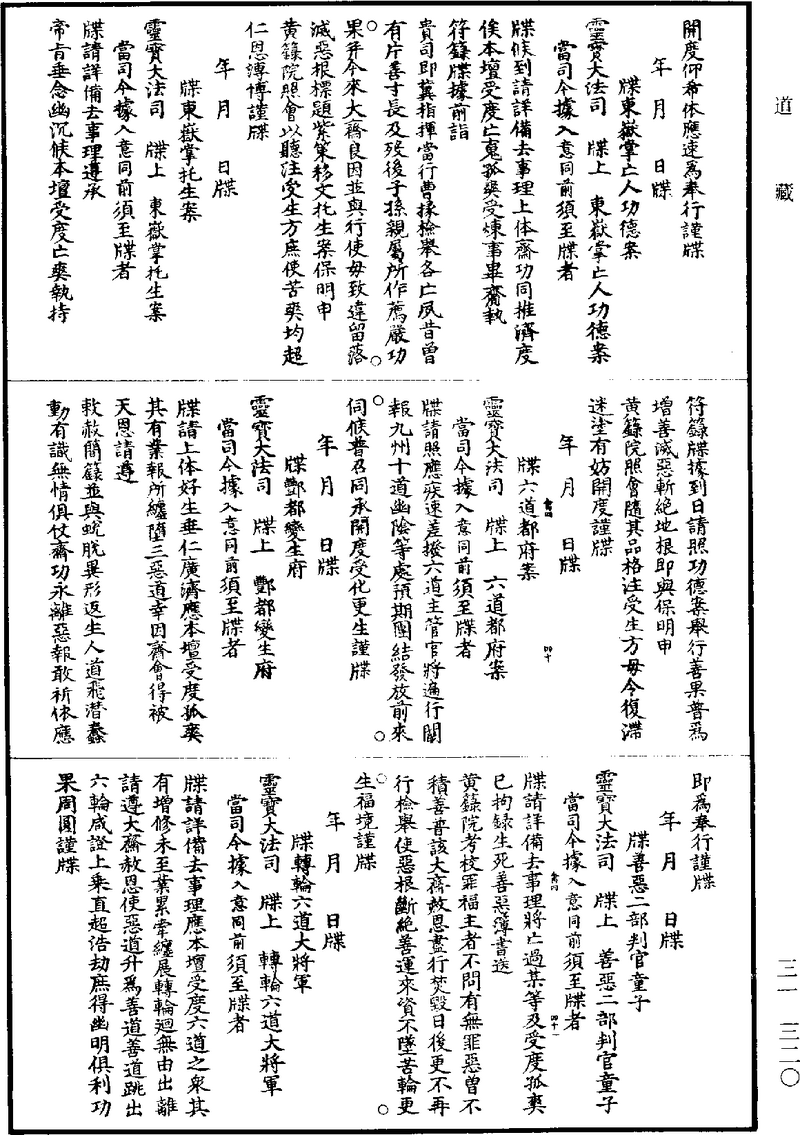 道藏
開度仰希体應速為奉行謹牒
年　月　日牒
牒東嶽掌亡人功德案
靈寶大法司　牒上　東嶽掌亡人功德案
當司今據入意同前須至牒者
牒候到請詳備去事理上体齋功同推濟度
俟本壇受度亡䰟孤爽受煉事畢齎執
符籙牒據前詣
貴司即冀指揮當行曹掾檢舉各亡夙昔曾
有片善寸長及歿後子孫親屬所作薦嚴功
果并今來大齋良因並與行使毋致違留落
滅惡根標題紫策移文托生案保明申
黃籙院照會以聽注受生方庶使苦爽均超
仁恩溥博謹牒
年　月　日牒
牒東嶽掌托生案
靈寶大法司　牒上　東嶽掌托生案
當司今據入意同前須至牒者
牒請詳備去事理遵承
帝㫖垂念幽沉候本壇受度亡爽執持
符籙牒據到日請照功德案舉行善果普為
增善滅惡斬絕地根即與保明申
黃籙院照會隨其品格注受生方毋令復滯
迷塗有妨開度謹牒
年　月　日牒
牒六道都府案
靈寶大法司　牒上　六道都府案
當司今據入意同前須至牒者
牒請照應疾速差撥六道主管官將遍行關
報九州十道幽陰等處預期團結發放前來
伺候普召同承開度受化更生謹牒
年　月　日牒
牒酆都變生府
靈寶大法司　牒上　酆都變生府
當司今據入意同前須至牒者
牒請上体好生垂仁廣濟應本壇受度孤爽
其有業報所纏墮三惡道幸因齋會得被
天恩請遵
敕赦簡籙並與蛻脫異形返生人道飛潛蠢
動有識無情俱仗齋功永離惡報敢祈体應
即為奉行謹牒
年　月　日牒
牒善惡二部判官童子
靈寶大法司　牒上　善惡二部判官童子
當司今據入意同前須至牒者
牒請詳備去事理將亡過某等及受度孤爽
已拘録生死善惡簿書送
黃籙院考校罪福主者不問有無罪惡曾不
積善普該大齋赦恩盡行焚毀日後更不再
行檢舉使惡根斷絕善運來資不墜苦輪更
生福境謹牒
年　月　日牒
牒轉輪六道大將軍
靈寶大法司　牒上　轉輪六道大將軍
當司今據入意同前須至牒者
牒請詳備去事理應本壇受度六道之衆其
有增修未至業累牽纏展轉輪迴無由出離
請遵大齋赦恩使惡道升為善道善道跳出
六輪咸證上乘直超浩劫庶得幽明俱利功
果周圓謹牒
三一　三二〇